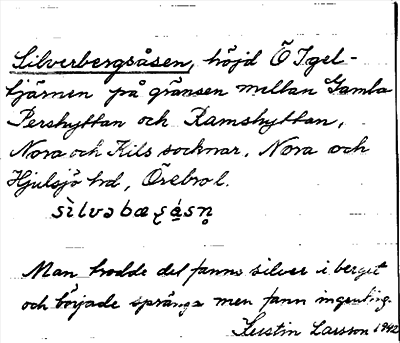 Silverbergsåsen, höjd Ö Igel-
tjärnen på gränsen mellan Gamla
Pershyttan och Ramshyttan,
Nora och Kils socknar, Nora och
Hjulsjö hd, Örebro l.
sìlvəbæʂásn̥
Man trodde det fanns silver i berget
och började spränga men fann ingenting.
Kerstin Larsson 1942